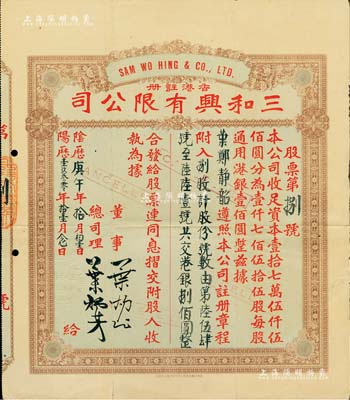 SAM WO HING & CO., LTD.
香港註冊
三和興有限公司
股票第捌號
本公司收足資本壹拾七萬伍仟伍
佰圓分為壹仟七佰伍拾伍股每股
通用港銀壹佰圓整茲據
鄭靜韶遵照本公司註冊章程
附入捌股計股份號數由第陸伍肆
號至陸陸壹號共交港銀捌佰圓整
合發給股票連同息摺交附股人收
執為據
董事
總司理
陰歷庚午年拾月
陽歷壹玖叁零年拾壹月
給